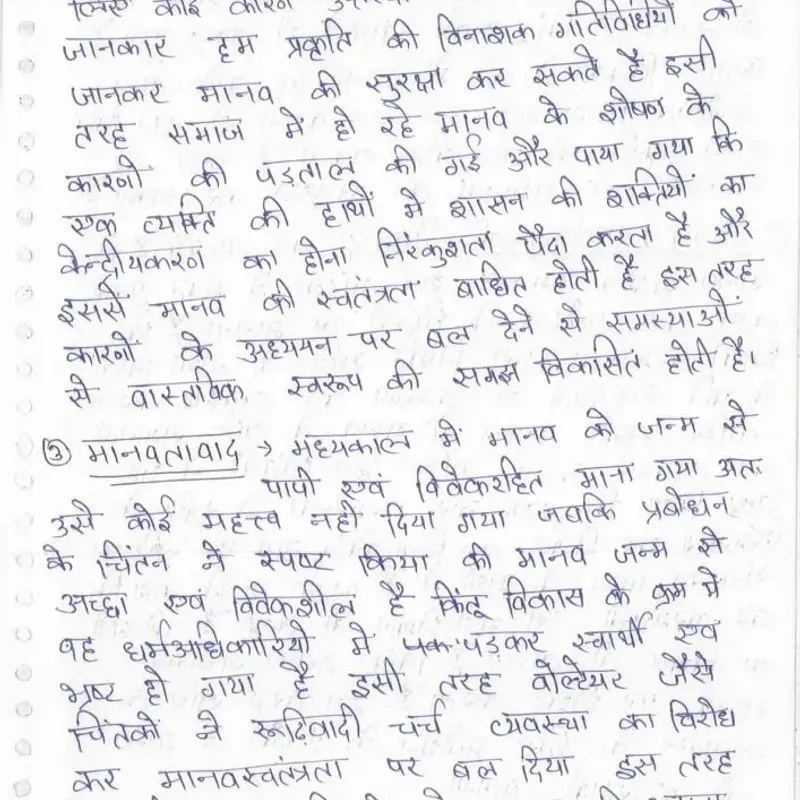 कोई कारण
जानकार हम प्रकृति की विनाशक गतिविधियों को
जानकर मानव की सुरक्षा कर सकते है इसी
तरह समाज मे हो रहे मानव के शोषन के
कारणों की पडताल की गई और पाया गया कि
एक व्यक्ति की हाथों मे शासन की शक्तियों का
केन्द्रीयकरण का होना निरंकुशता पैदा करता है और
इससे मानव की स्वतंत्रता बाधित होती है इस तरह
कारणों के अध्ययन पर बल देने से समस्याओं
से वास्तविक स्वरूप की समझ विकासित होती है।
③ मानवतावाद → मध्यकाल में मानव को जन्म से
पापी एवं विवेकरहित माना गया अतः
उसे कोई महत्त्व नही दिया गया जबकि प्रबोधन
के चिंतन ने स्पष्ट किया की मानव जन्म से
अच्छा एवं विवेकशील है किंतु विकास के क्रम मे
वह धर्मअधिकारियो मे पडकर स्वार्थी एवं
भ्रष्ट हो गया है इसी तरह वोल्टेयर जैसे
चिंतकों ने रूढिवादी चर्च व्यवस्था का विरोध
कर मानवस्वतंत्रता पर बल दिया इस तरह